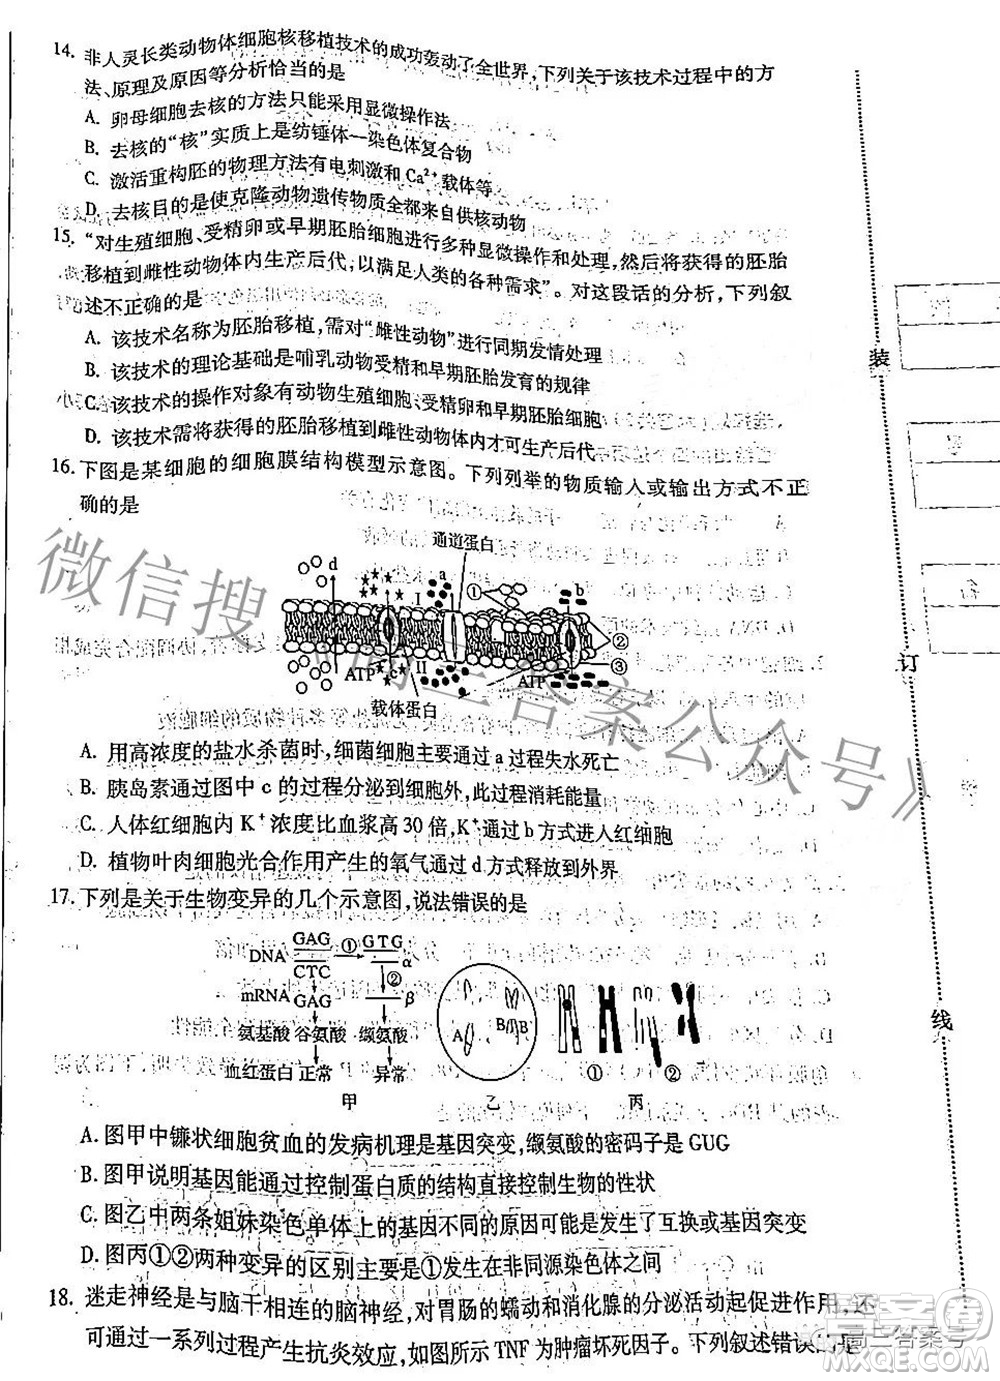 14. 非人灵长类动物体细胞核移植技术的成功轰动了全世界,下列关于该技术过程中的方
法、原理及原因等分析恰当的是
A. 卵母细胞去核的方法只能采用显微操作法
B. 去核的“核”实质上是纺锤体—染色体复合物
C. 激活重构胚的物理方法有电刺激和Ca²⁺载体等
D. 去核目的是使克隆动物遗传物质全部来自供核动物
15. “对生殖细胞、受精卵或早期胚胎细胞进行多种显微操作和处理,然后将获得的胚胎
移植到雌性动物体内生产后代,以满足人类的各种需求”。对这段话的分析,下列叙
述不正确的是
A. 该技术名称为胚胎移植,需对“雌性动物”进行同期发情处理
B. 该技术的理论基础是哺乳动物受精和早期胚胎发育的规律
C. 该技术的操作对象有动物生殖细胞、受精卵和早期胚胎细胞
D. 该技术需将获得的胚胎移植到雌性动物体内才可生产后代
16. 下图是某细胞的细胞膜结构模型示意图。下列列举的物质输入或输出方式不正
确的是
通道蛋白
d a ① b
I
②
II c ③
ATP ATP
载体蛋白
A. 用高浓度的盐水杀菌时,细菌细胞主要通过a过程失水死亡
B. 胰岛素通过图中c的过程分泌到细胞外,此过程消耗能量
C. 人体红细胞内K⁺浓度比血浆高30倍,K⁺通过b方式进入红细胞
D. 植物叶肉细胞光合作用产生的氧气通过d方式释放到外界
17. 下列是关于生物变异的几个示意图,说法错误的是
DNA GAG ① GTG
CTC α
②
mRNA GAG β
氨基酸 谷氨酸 缬氨酸
血红蛋白 正常 异常
甲
A B B
乙
① ②
丙
A. 图甲中镰状细胞贫血的发病机理是基因突变,缬氨酸的密码子是GUG
B. 图甲说明基因能通过控制蛋白质的结构直接控制生物的性状
C. 图乙中两条姐妹染色单体上的基因不同的原因可能是发生了互换或基因突变
D. 图丙①②两种变异的区别主要是①发生在非同源染色体之间
18. 迷走神经是与脑干相连的脑神经,对胃肠的蠕动和消化腺的分泌活动起促进作用,还
可通过一系列过程产生抗炎效应,如图所示TNF为肿瘤坏死因子。下列叙述错误的是
装
订
线
微信搜《高三答案公众号》
高三答案号
答案圈
MXQE.COM